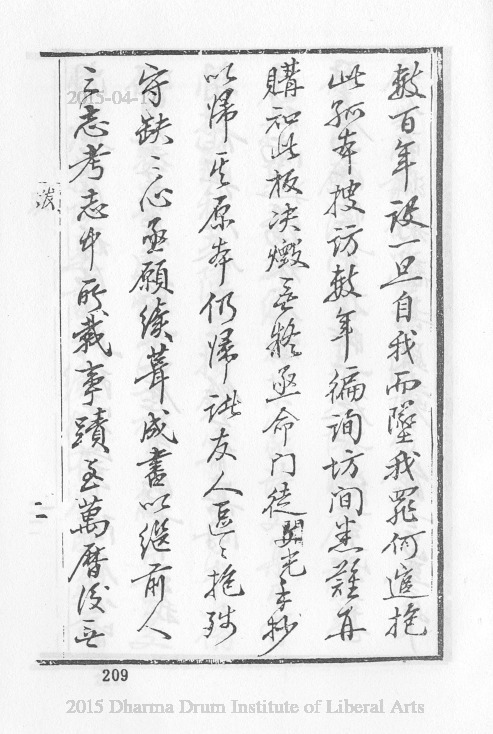 數百年設一旦自我而墜我罪何逭抱
此孤本搜訪數年徧詢坊間悉難再
購知此板决燬無疑亟命门徒開光手抄
以歸其原本仍歸諸友人區〻抱殘
守缺〻心亟願續葺成書以繼前人
之志考志中所載事蹟至萬曆後無
跋
二
209
2015-04-1
2015 Dharma Drum Institute of Liberal Arts